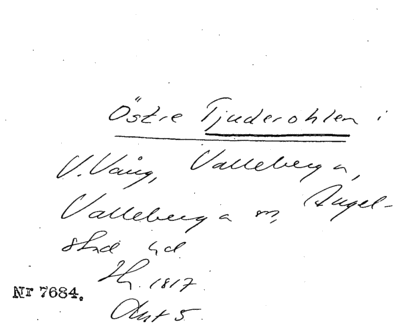 Östre Tjuderohlen i
V. Vång, Valleberga,
Valleberga sn, Ingel-
stad hd.
Nr 7684.